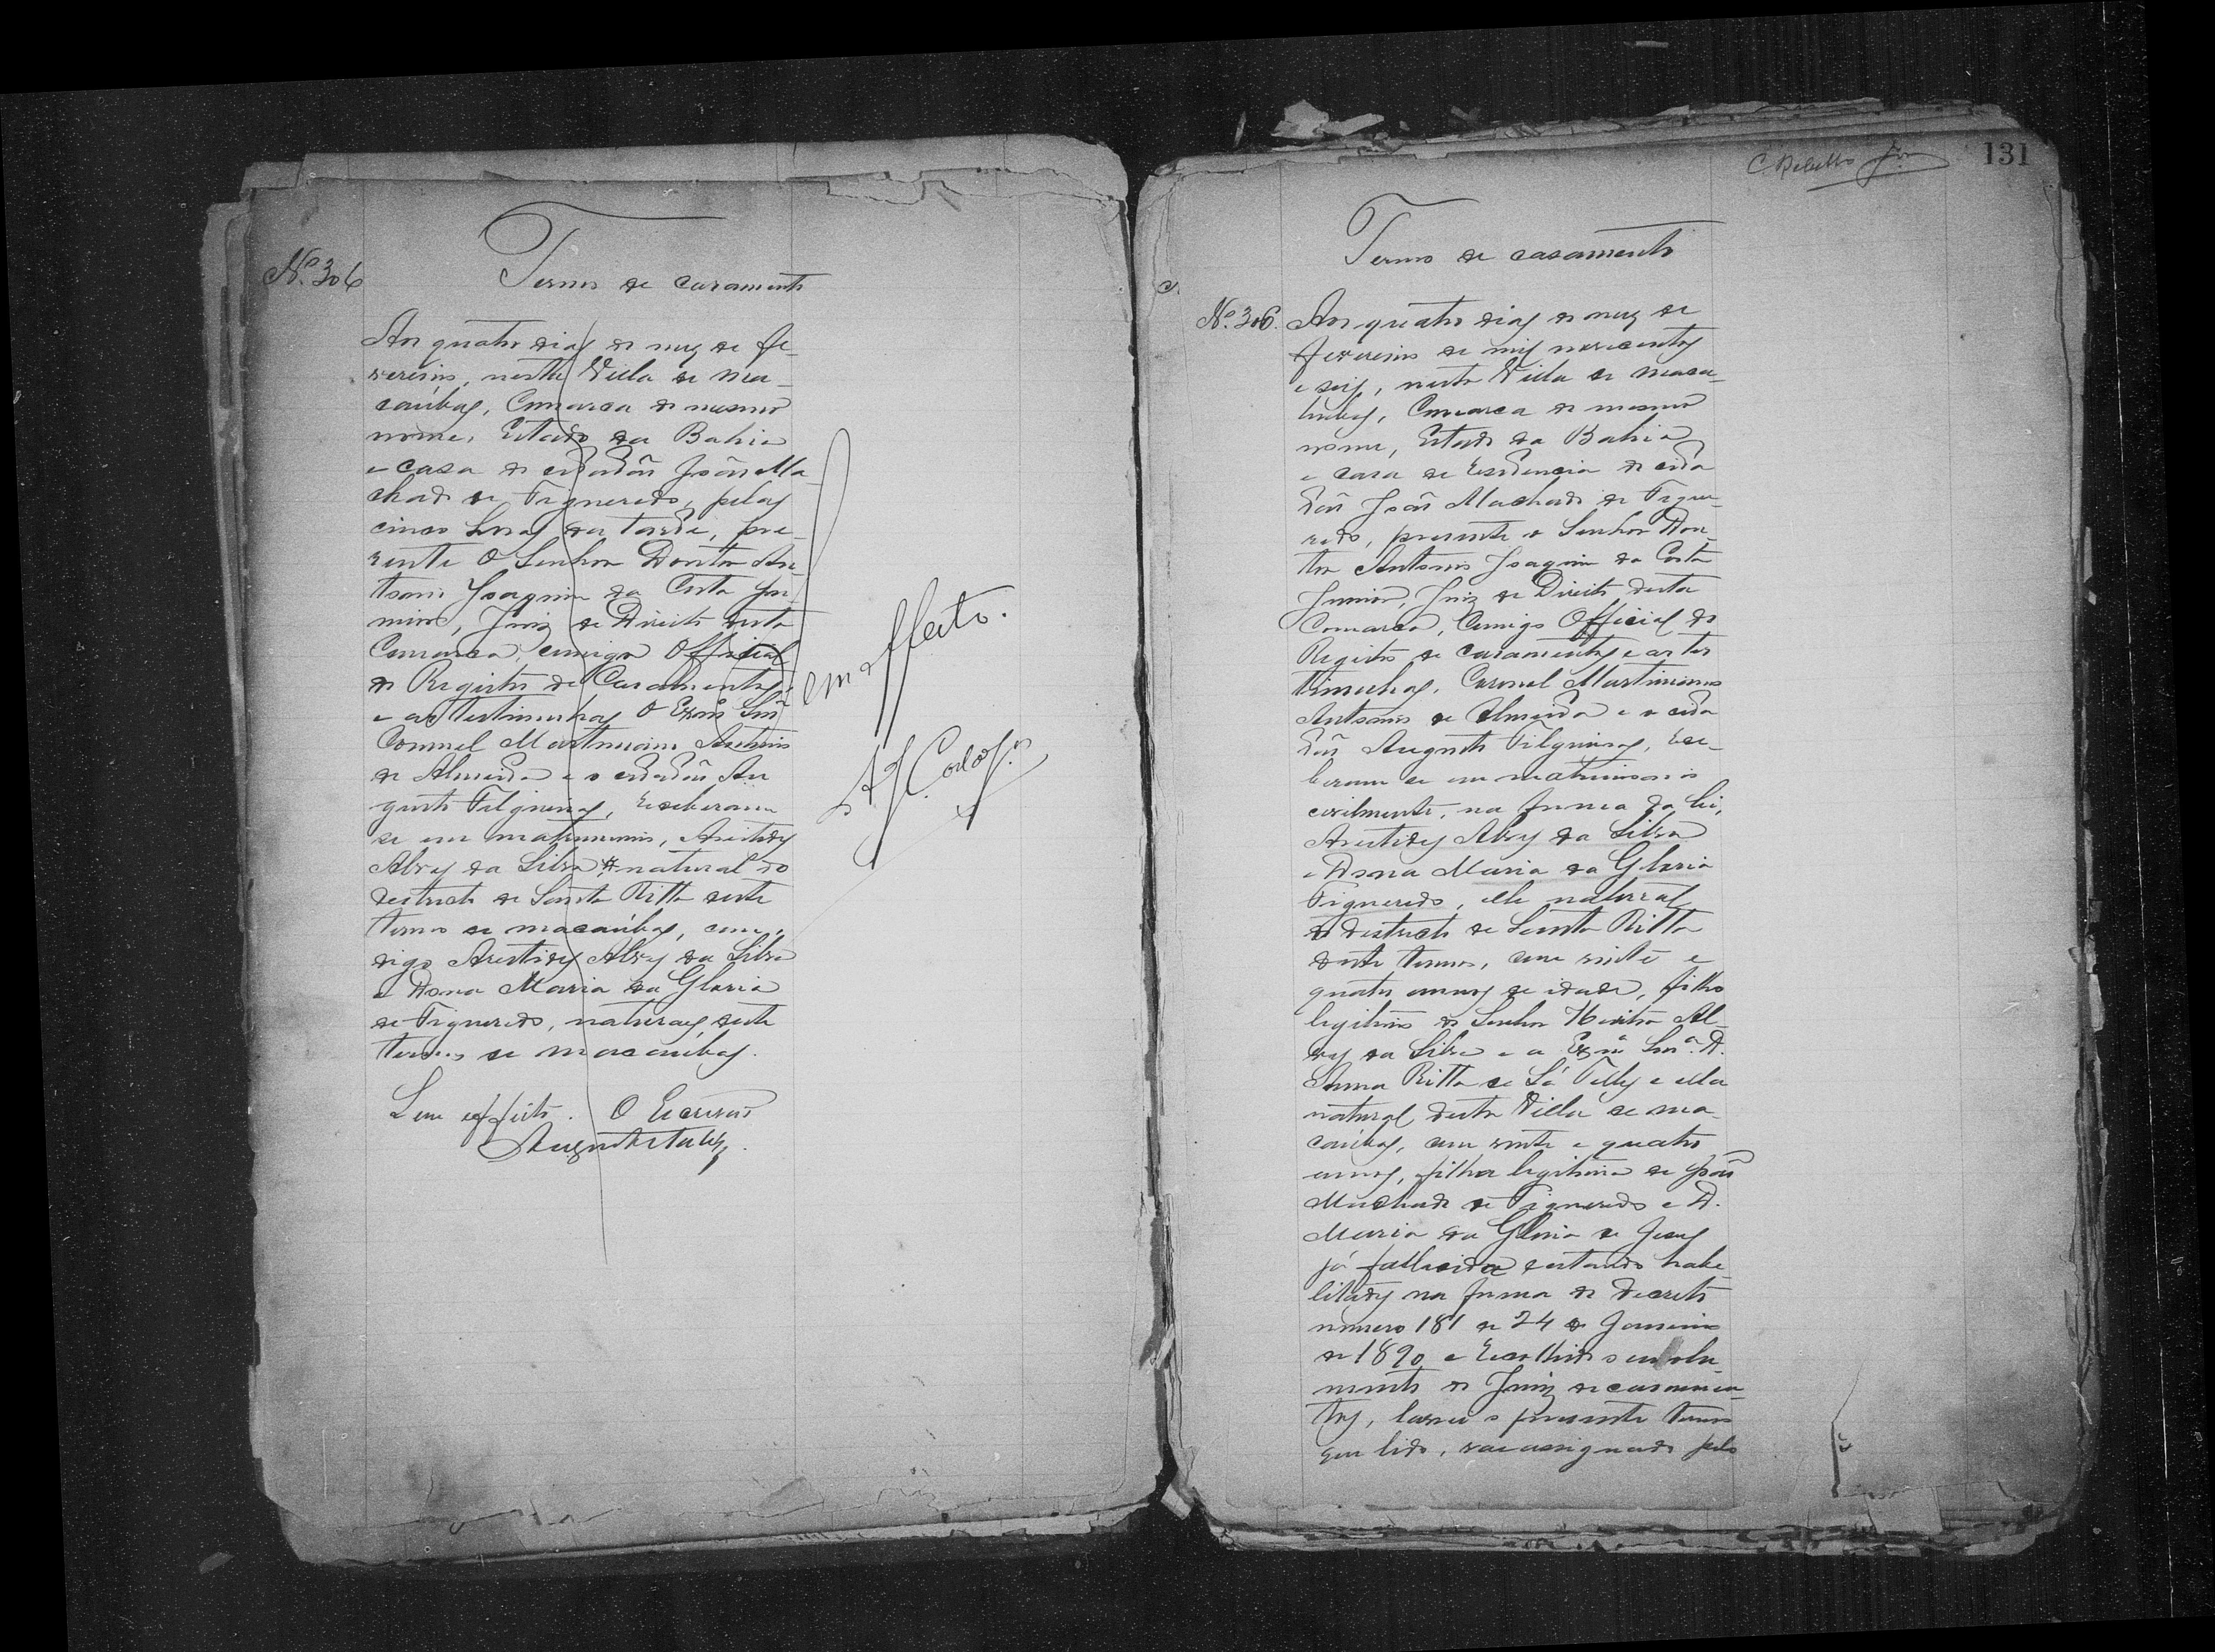 Nº 306
Termo de casamento
Aos quatro dias do mez de fe-
vereiro, nesta Villa de Ma-
caúbas, Comarca do mesmo
nome, Estado da Bahia
e casa do cidadão João Ma-
chado de Figueredo, pelas
cinco horas da tarde, pre-
sente o Senhor Doutor An-
tonio Joaquim da Costa Ju-
nior, Juiz de Direito desta
Comarca, comigo Official
do Registro de Casamentos
e as testimunhas o Exmo Snr
Coronel Martiniano Antonio
de Almeida e o cidadão Au
gusto Filgueiras, receberam
se em matrimonio, Aristides
Alves da Silva natural do
destricto de Santa Ritta deste
termo de Macaúbas, com,
digo Aristides Alves da Silva
e Dona Maria da Gloria
de Figueredo, naturaes deste
termo de Macaúbas.
Sem effeito. O Escrivão
em effeito.
A J. Costa Jor
C. Rebello Jor
131
Termo de casamento
Nº 306. Aos quatro dias do mez de
fevereiro de mil novecentos
e seis, nesta Villa de Maca-
hubas, Comarca do mesmo
nome, Estado da Bahia
e casa de residencia do cida
dão João Machado de Figue-
redo, presente o Senhor Dou-
tor Antonio Joaquim da Costa
Junior, Juiz de Direito desta
Comarca, Comigo Official do
Registro de casamentos e as tes
timunhas, Coronel Martiniano
Antonio de Almeida e o cida
dão Augusto Filgueiras, rece-
beram se em matrimonio
civilmente, na forma da lei,
Aristides Alves da Silva
e Dona Maria da Gloria
Figueredo, elle natural
do destricto de Santa Ritta
deste termo, com vinte e
quatro annos de idade, filho
legitimo do Senhor Heitor Al-
ves da Silva e a Exmª Snrª D.
Anna Ritta de Sá Telles e ella
natural desta Villa de Ma
caúbas, com vinte e quatro
annos, filha legitima de João
Machado de Figueredo e D.
Maria da Gloria de Jesus
já fallecida estando habe
litados na forma do decreto
numero 181 de 24 de Janeiro
de 1890 e recolhido o emolu
mento do Juiz de casamen-
tos, lavrei o presente termo
que lido, vae assignado pelo